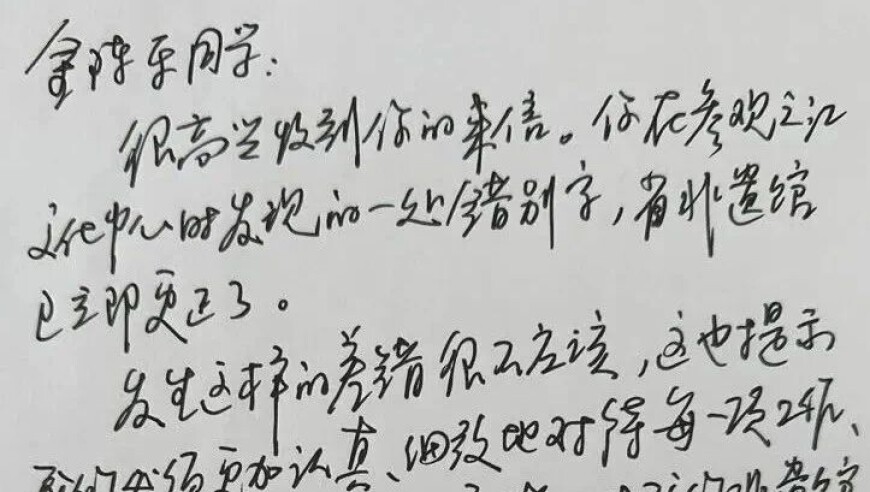 金陈乐同学:
很高兴收到你的来信。你在参观之江
文化中心时发现的一处错别字,省非遗馆
已立即更正了。
发生这样的差错很不应该,这也提示
我们必须更加认真、细致地对待每一项工作、